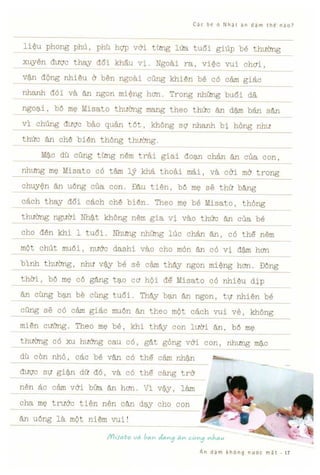 Các bé ở Nhật ăn dặm thế nào?
liệu phong phú, phù hợp với từng lứa tuổi giúp bé thường
xuyên được thay đổi khẩu vị. Ngoài ra, việc vui chơi,
vận động nhiều ở bên ngoài cũng khiến bé có cảm giác
nhanh đói và ăn ngon miệng hơn. Trong những buổi dã
ngoại, bố mẹ Misato thường mang theo thức ăn dặm bán sẵn
vì chúng được bảo quản tốt, không sợ nhanh bị hỏng như
thức ăn chế biến thông thường.
Mặc dù cũng từng nếm trải giai đoạn chán ăn của con,
nhưng mẹ Misato có tâm lý khá thoải mái, và cởi mở trong
chuyện ăn uống của con. Đầu tiên, bố mẹ sẽ thử bằng
cách thay đổi cách chế biến. Theo mẹ bé Misato, thông
thường người Nhật không nêm gia vị vào thức ăn của bé
cho đến khi 1 tuổi. Nhưng những lúc chán ăn, có thể nêm
một chút muối, nước dashi vào cho món ăn có vị đậm hơn
bình thường, như vậy bé sẽ cảm thấy ngon miệng hơn. Đồng
thời, bố mẹ cố gắng tạo cơ hội để Misato có nhiều dịp
ăn cùng bạn bè cùng tuổi. Thấy bạn ăn ngon, tự nhiên bé
cũng sẽ có cảm giác muốn ăn theo một cách vui vẻ, không
miễn cưỡng. Theo mẹ bé, khi thấy con lười ăn, bố mẹ
thường có xu hướng cau có, gắt gỏng với con, nhưng mặc
dù còn nhỏ, các bé vẫn có thể cảm nhận
được sự giận dữ đó, và có thể càng trở
nên ác cảm với bữa ăn hơn. Vì vậy, làm
cha mẹ trước tiên nên cần dạy cho con
ăn uống là một niềm vui!
Misato và bạn đang ăn cùng nhau
Ăn dặm không nước mắt - 17